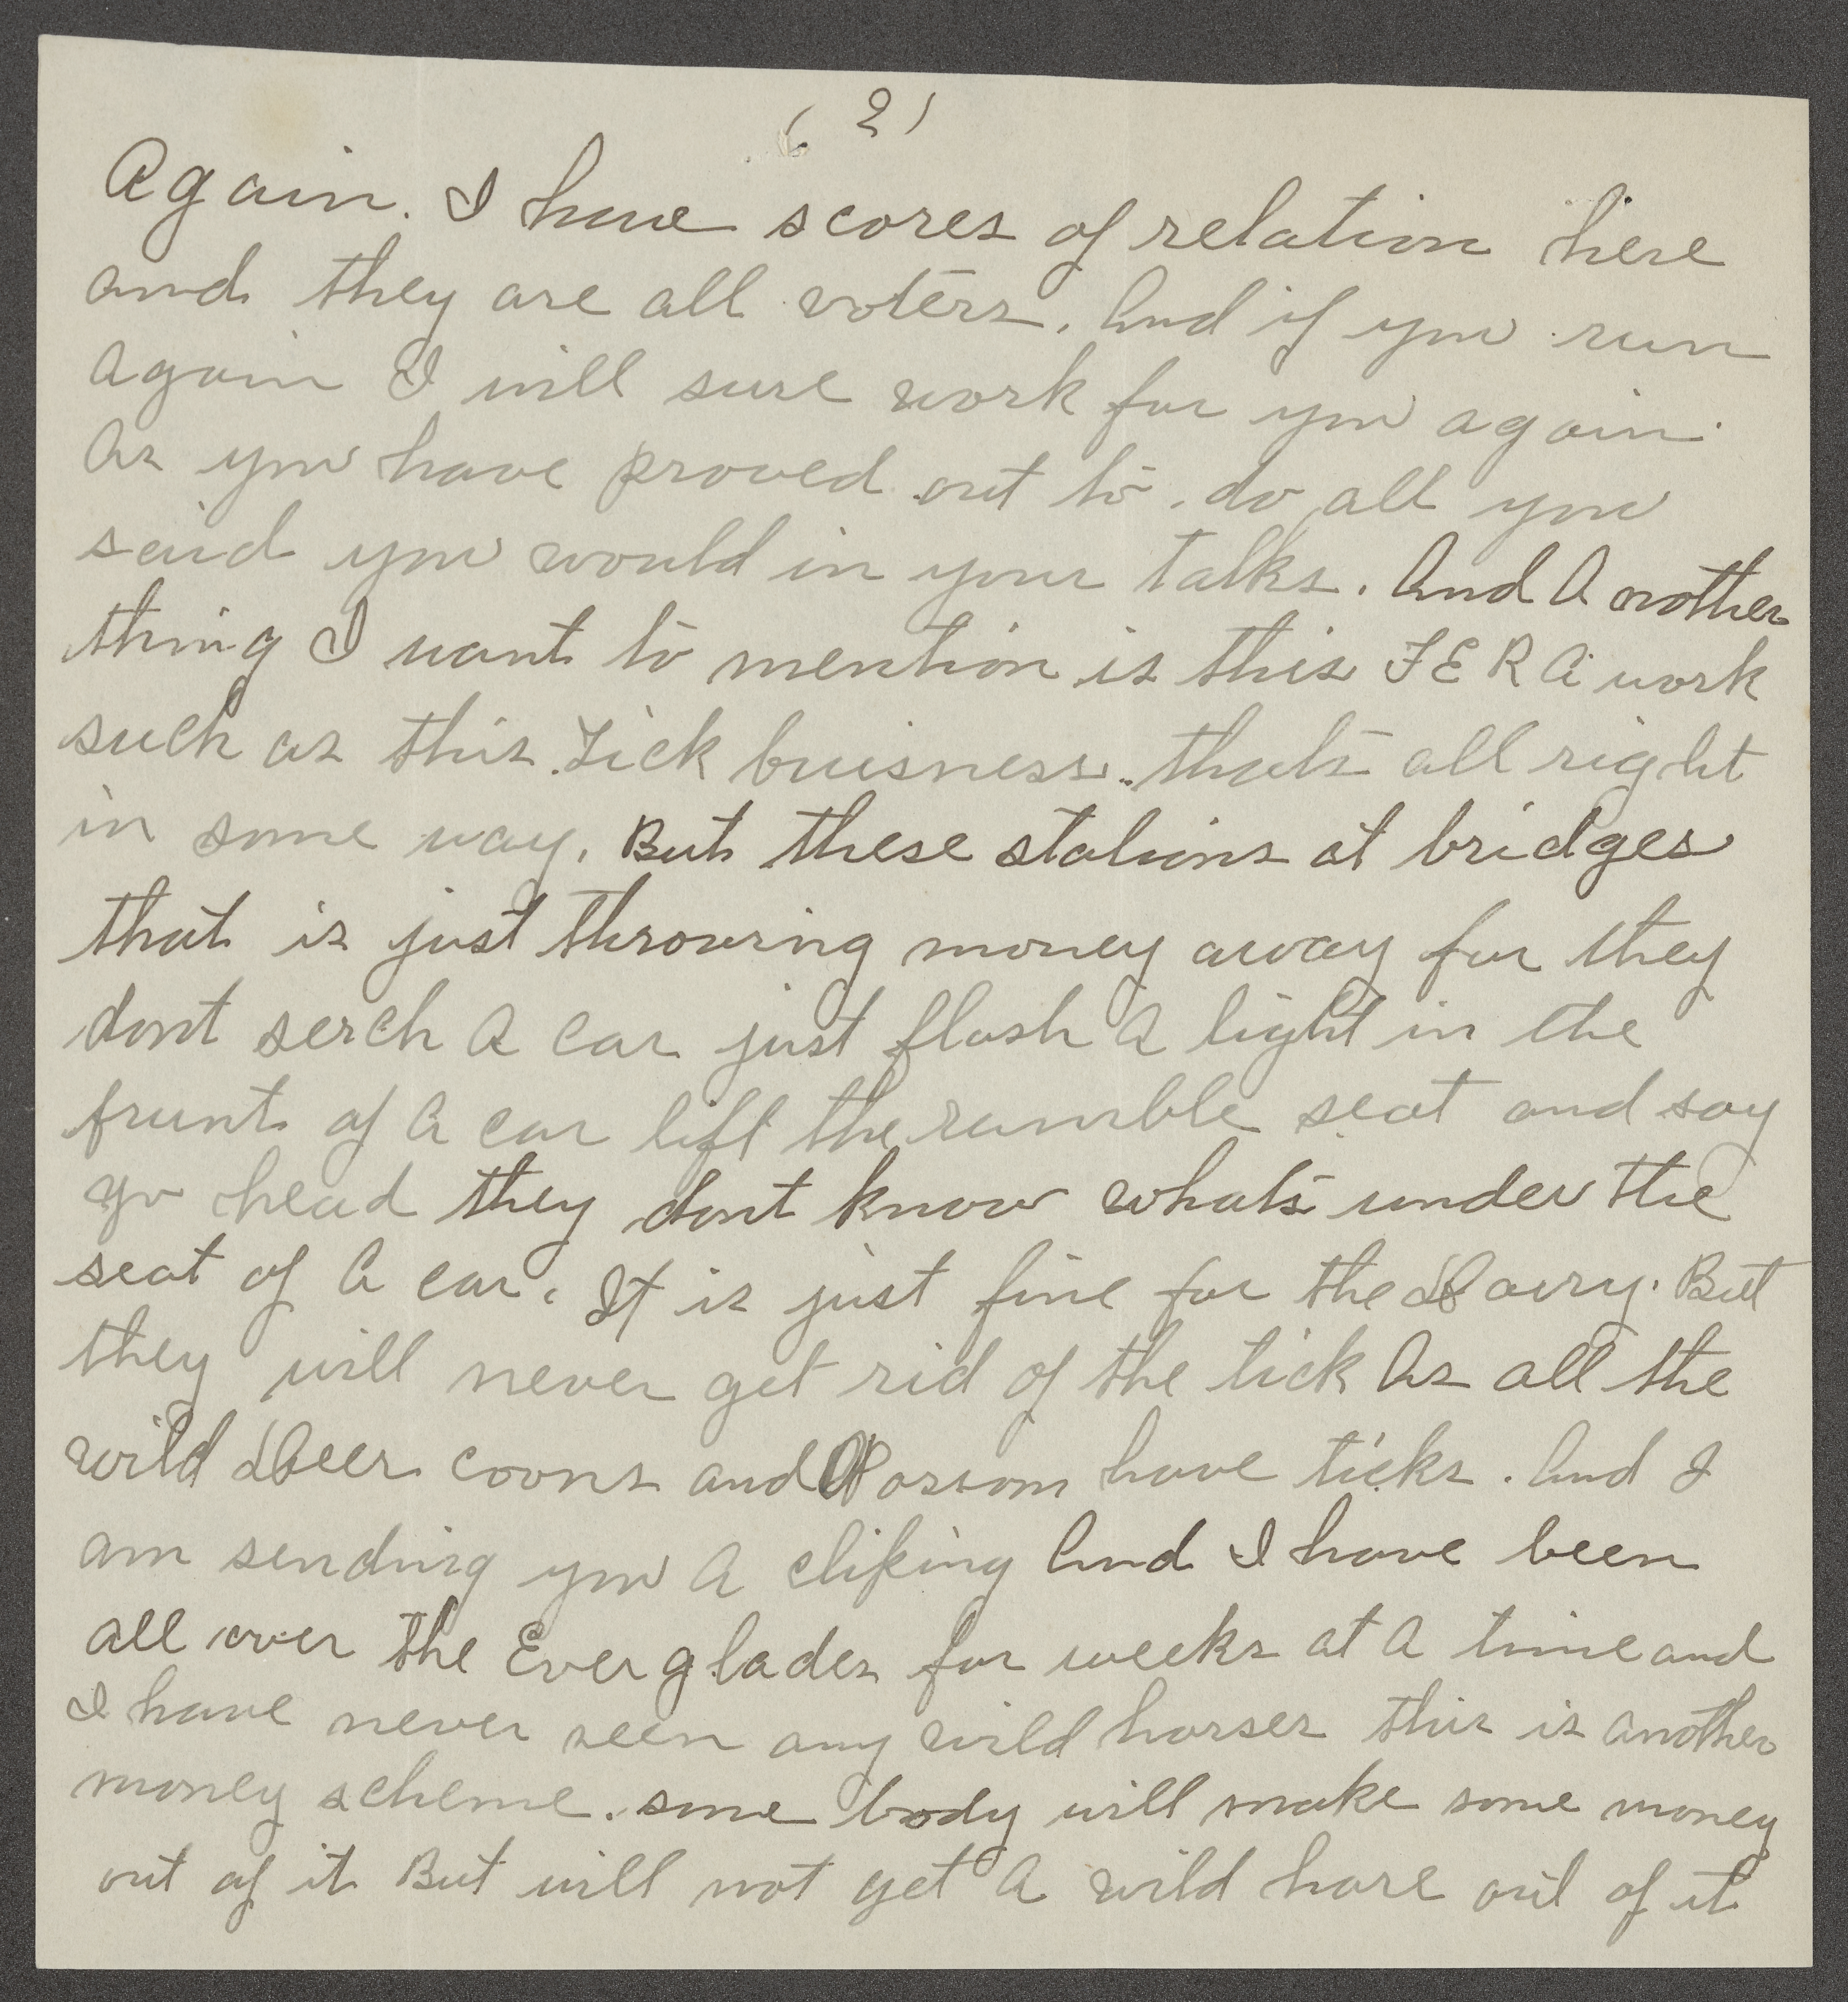 ( 2 )
Again. I have scores of relation here
and they are all voters. And if you run
again I will sure work for you again.
As you have proved out to do all you
said you would in your talks. And A nother
thing I want to mention is this F E R A work
such as this Tick buisness. thats all right
in some way. But these stations at bridges
that is just throwing money away for they
dont serch A car just flash A light in the
frunt of A car lift the rumble seat and say
go head they dont know whats under the
seat of A car. It is just fine for the Dairy. But
they will never get rid of the tick As all the
wild Deer coons and Possom have ticks. And I
am sending you A cliping And I have been
all over the Everglades for weeks at A time and
I have never seen any wild horses this is another
money scheme. some body will make some money
out of it But will not get A wild horse out of it